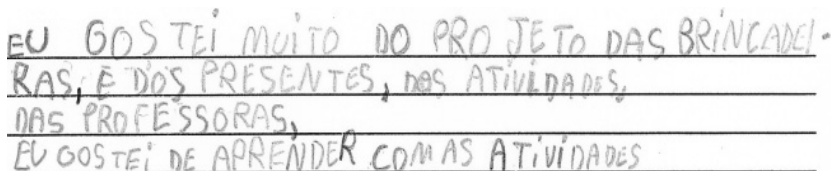 EU GOSTEI MUITO DO PROJETO DAS BRINCADEI-
RAS, E DOS PRESENTES, DAS ATIVIDADES,
DAS PROFESSORAS,
EU GOSTEI DE APRENDER COM AS ATIVIDADES